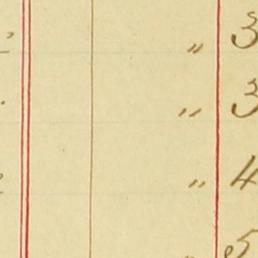 " 3
" 3
" 4
" 5